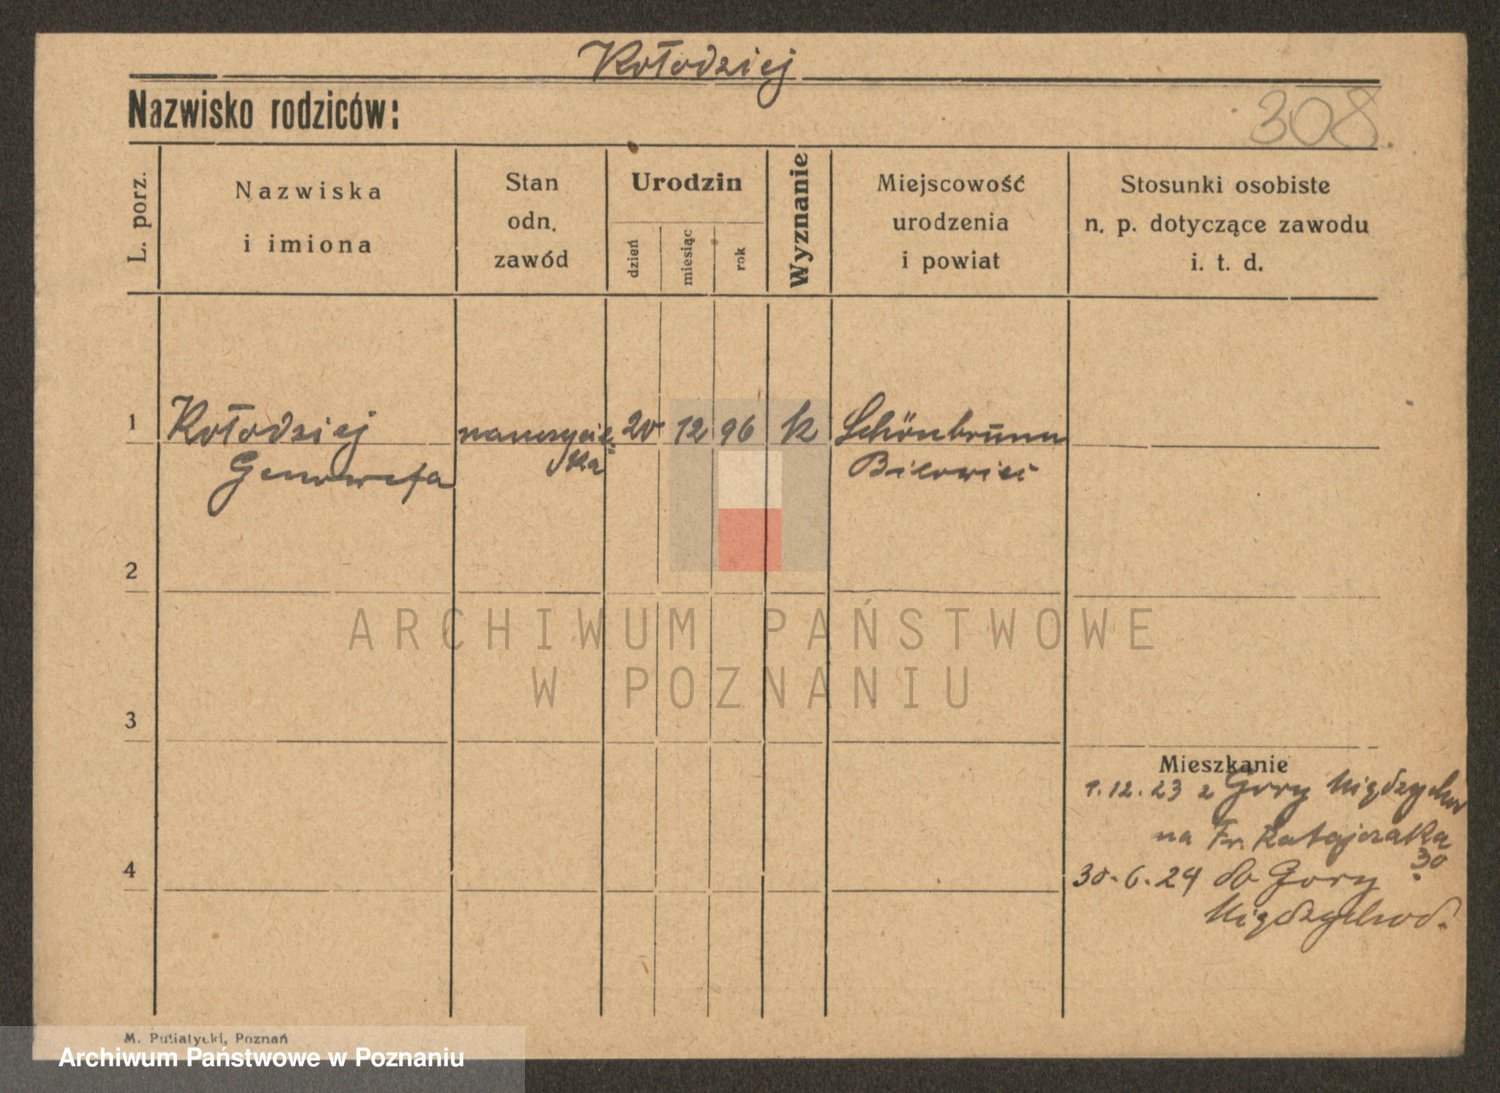 Kołodziej
Nazwisko rodziców:
308.
L. porz.
Nazwiska
i imiona
Stan
odn.
zawód
Urodzin
dzień
miesiąc
rok
Wyznanie
Miejscowość
urodzenia
i powiat
Stosunki osobiste
n. p. dotyczące zawodu
i. t. d.
1 Kołodziej nauczyciel- 20 12 96 k Schönbrunn
Genowefa ska
2
3
4
ARCHIWUM PAŃSTWOWE
W POZNANIU
Mieszkanie
1.12.23 z Gory Międzychod
na Fr. Ratajczaka
30
30.6.24 do Gory
Międzychod.
M. Putiatycki, Poznań
Archiwum Państwowe w Poznaniu